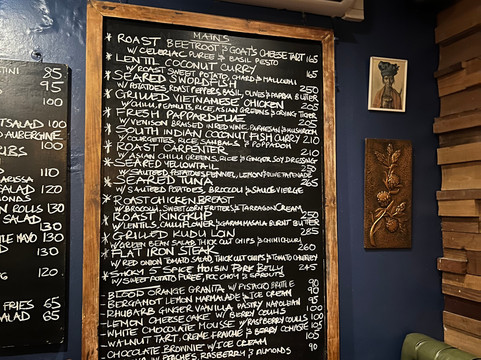 TINI 85
95
100
SALAD 100
AUBERGINE
RBS
110
ARISSA
ALAD 120
MONDS
N ROLLS 130
SALAD
130
TLE MAYO 130
130
NG 120
FRIES 65
SALAD 65
MAINS
* ROAST BEETROOT & GOATS CHEESE TART 165
W/ CELERIAC PUREE & BASIL PESTO
* LENTIL COCONUT CURRY
W/ ROAST SWEET POTATO, CHARD & HALLOUMI 165
* SEARED SWORDFISH
W/ POTATOES, ROAST PEPPERS, BASIL, OLIVES & PAPRIKA BUTTER
* GRILLED VIETNAMESE CHICKEN 250
W/ CHILLI, PEANUTS, RICE, ASIAN GREENS & CRYING TIGER
* FRESH PAPPARDELLE 205
W/ VENISON BRAISED IN RED WINE, PARMESAN & MUSHROOM
* SOUTH INDIAN COCONUT FISH CURRY 210
W/ COURGETTES, RICE, SAMBALS & POPPADOM
* ROAST CARPENTER 210
W/ ASIAN CHILLI GREENS, RICE & GINGER SOY DRESSING
* SEARED YELLOWTAIL 250
W/ SAUTEED POTATOES, FENNEL, LEMON
* SEARED TUNA 265
W/ SAUTEED POTATOES, BROCCOLI & SAUCE VIERGE
* ROAST CHICKEN BREAST
W/ BROCCOLI, SWEETCORN FRITTER & TARRAGON CREAM
* ROAST KINGKLIP 250
W/ LENTILS, CAULIFLOWER & GARAM MASALA BURNT BUTTER
* GRILLED KUDU LOIN 285
W/ GREEN BEAN SALAD, THICK CUT CHIPS & CHIMICHURRI
* FLAT IRON STEAK 260
W/ RED ONION TOMATO SALAD, THICK CUT CHIPS & TOMATO CHUTNEY
* SMOKY 5 SPICE HOISIN PORK BELLY 245
W/ SWEET POTATO PUREE, POC CHOM & SPROUTS
- BLOOD ORANGE GRANITA W/ PISTACHIO BRITTLE 90
- BERGAMOT LEMON MARMALADE ICE CREAM 90
- RHUBARB GINGER VANILLA PASTRY NAPOLEAN 95
- LEMON CHEESECAKE W/ BERRY COULIS 100
- WHITE CHOCOLATE MOUSSE W/ RASPBERRY COULIS 100
- WALNUT TART, CREME FRAICHE & BERRY COMPOTE 105
- CHOCOLATE BROWNIE W/ ICE CREAM 90
W/ PEACHES, RASBERRY & ALMONDS 90